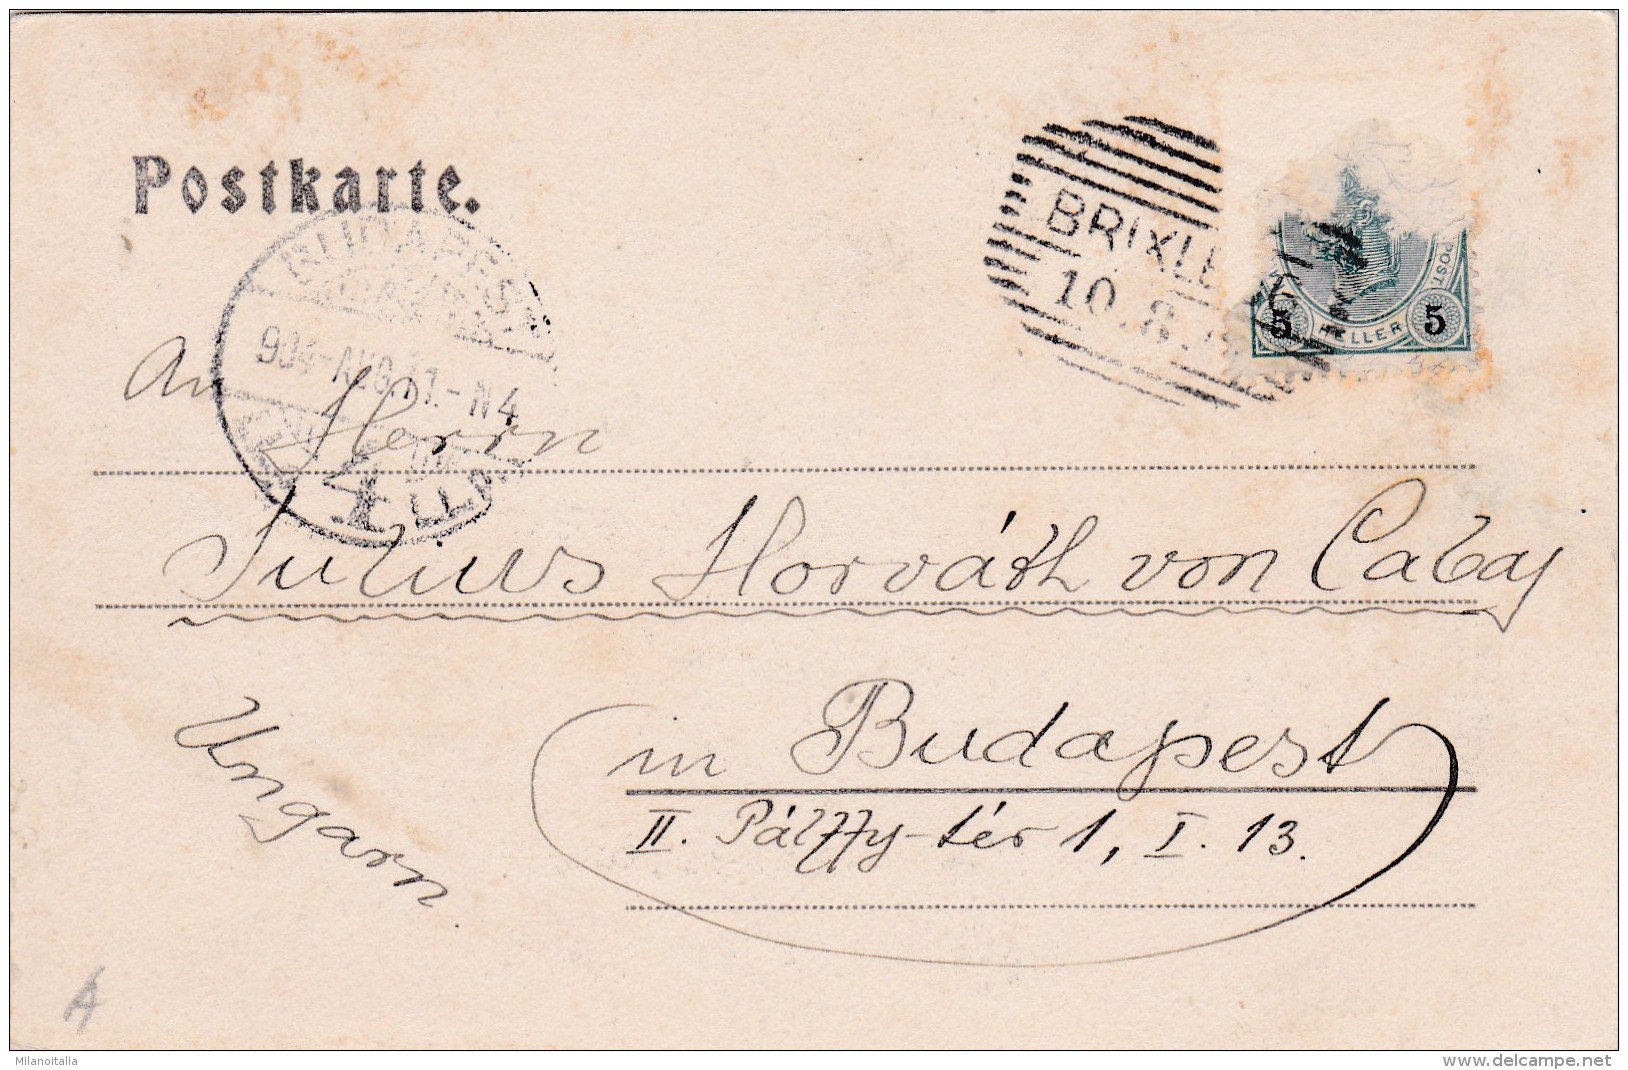 Postkarte.
BRIXLE
10.8.
5 HELLER 5
POST
BUDAPEST
904-AUG.11.-N4
An Herrn
Julius Horváth von Cabaj
in Budapest
II. Pálffy-tér 1, I. 13.
Ungarn
A
Milanoitalia
www.delcampe.net